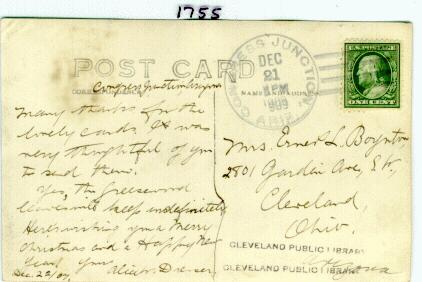 1755
POST CARD
CORRESPONDENCE
NAME AND ADDRESS
CONGRESS JUNCTION, ARIZ.
DEC
21
PM
1909
ONE CENT
Congress Junction Arizona
Many thanks for the
lovely cards. It was
very thoughtful of you
to send them.
Yes, the greasewood
leaves will keep indefinitely
Here's wishing you a Merry
Christmas and a Happy New
Year
Dec. 20/09.
Mrs. Ernest L. Boynton
2801 Garden Ave,
Cleveland,
Ohio.
CLEVELAND PUBLIC LIBRARY
Arizona
CLEVELAND PUBLIC LIBRARY